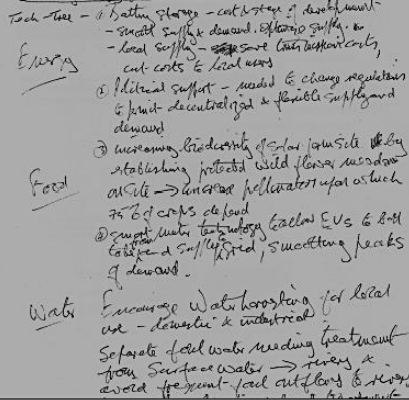 Tech-Tree - ① Battery storage - cost & stage of development
- smooth supply & demand. supply
- local supply - save transmission costs,
Energy
cut costs to local users
② Political support - needed to change regulations
to permit decentralized & flexible supply and
demand
③ increasing biodiversity of solar farm site by
establishing protected wild flower meadow
Food
onsite → increase pollinators upon which
75% of crops depend
④ smart meter technology to allow EVs to both
take from and supply to grid, smoothing peaks
of demand.
Water
Encourage Water harvesting for local
use - domestic & industrial
Separate foul water needing treatment
from Surface water → rivers &
avoid frequent foul outflows to rivers